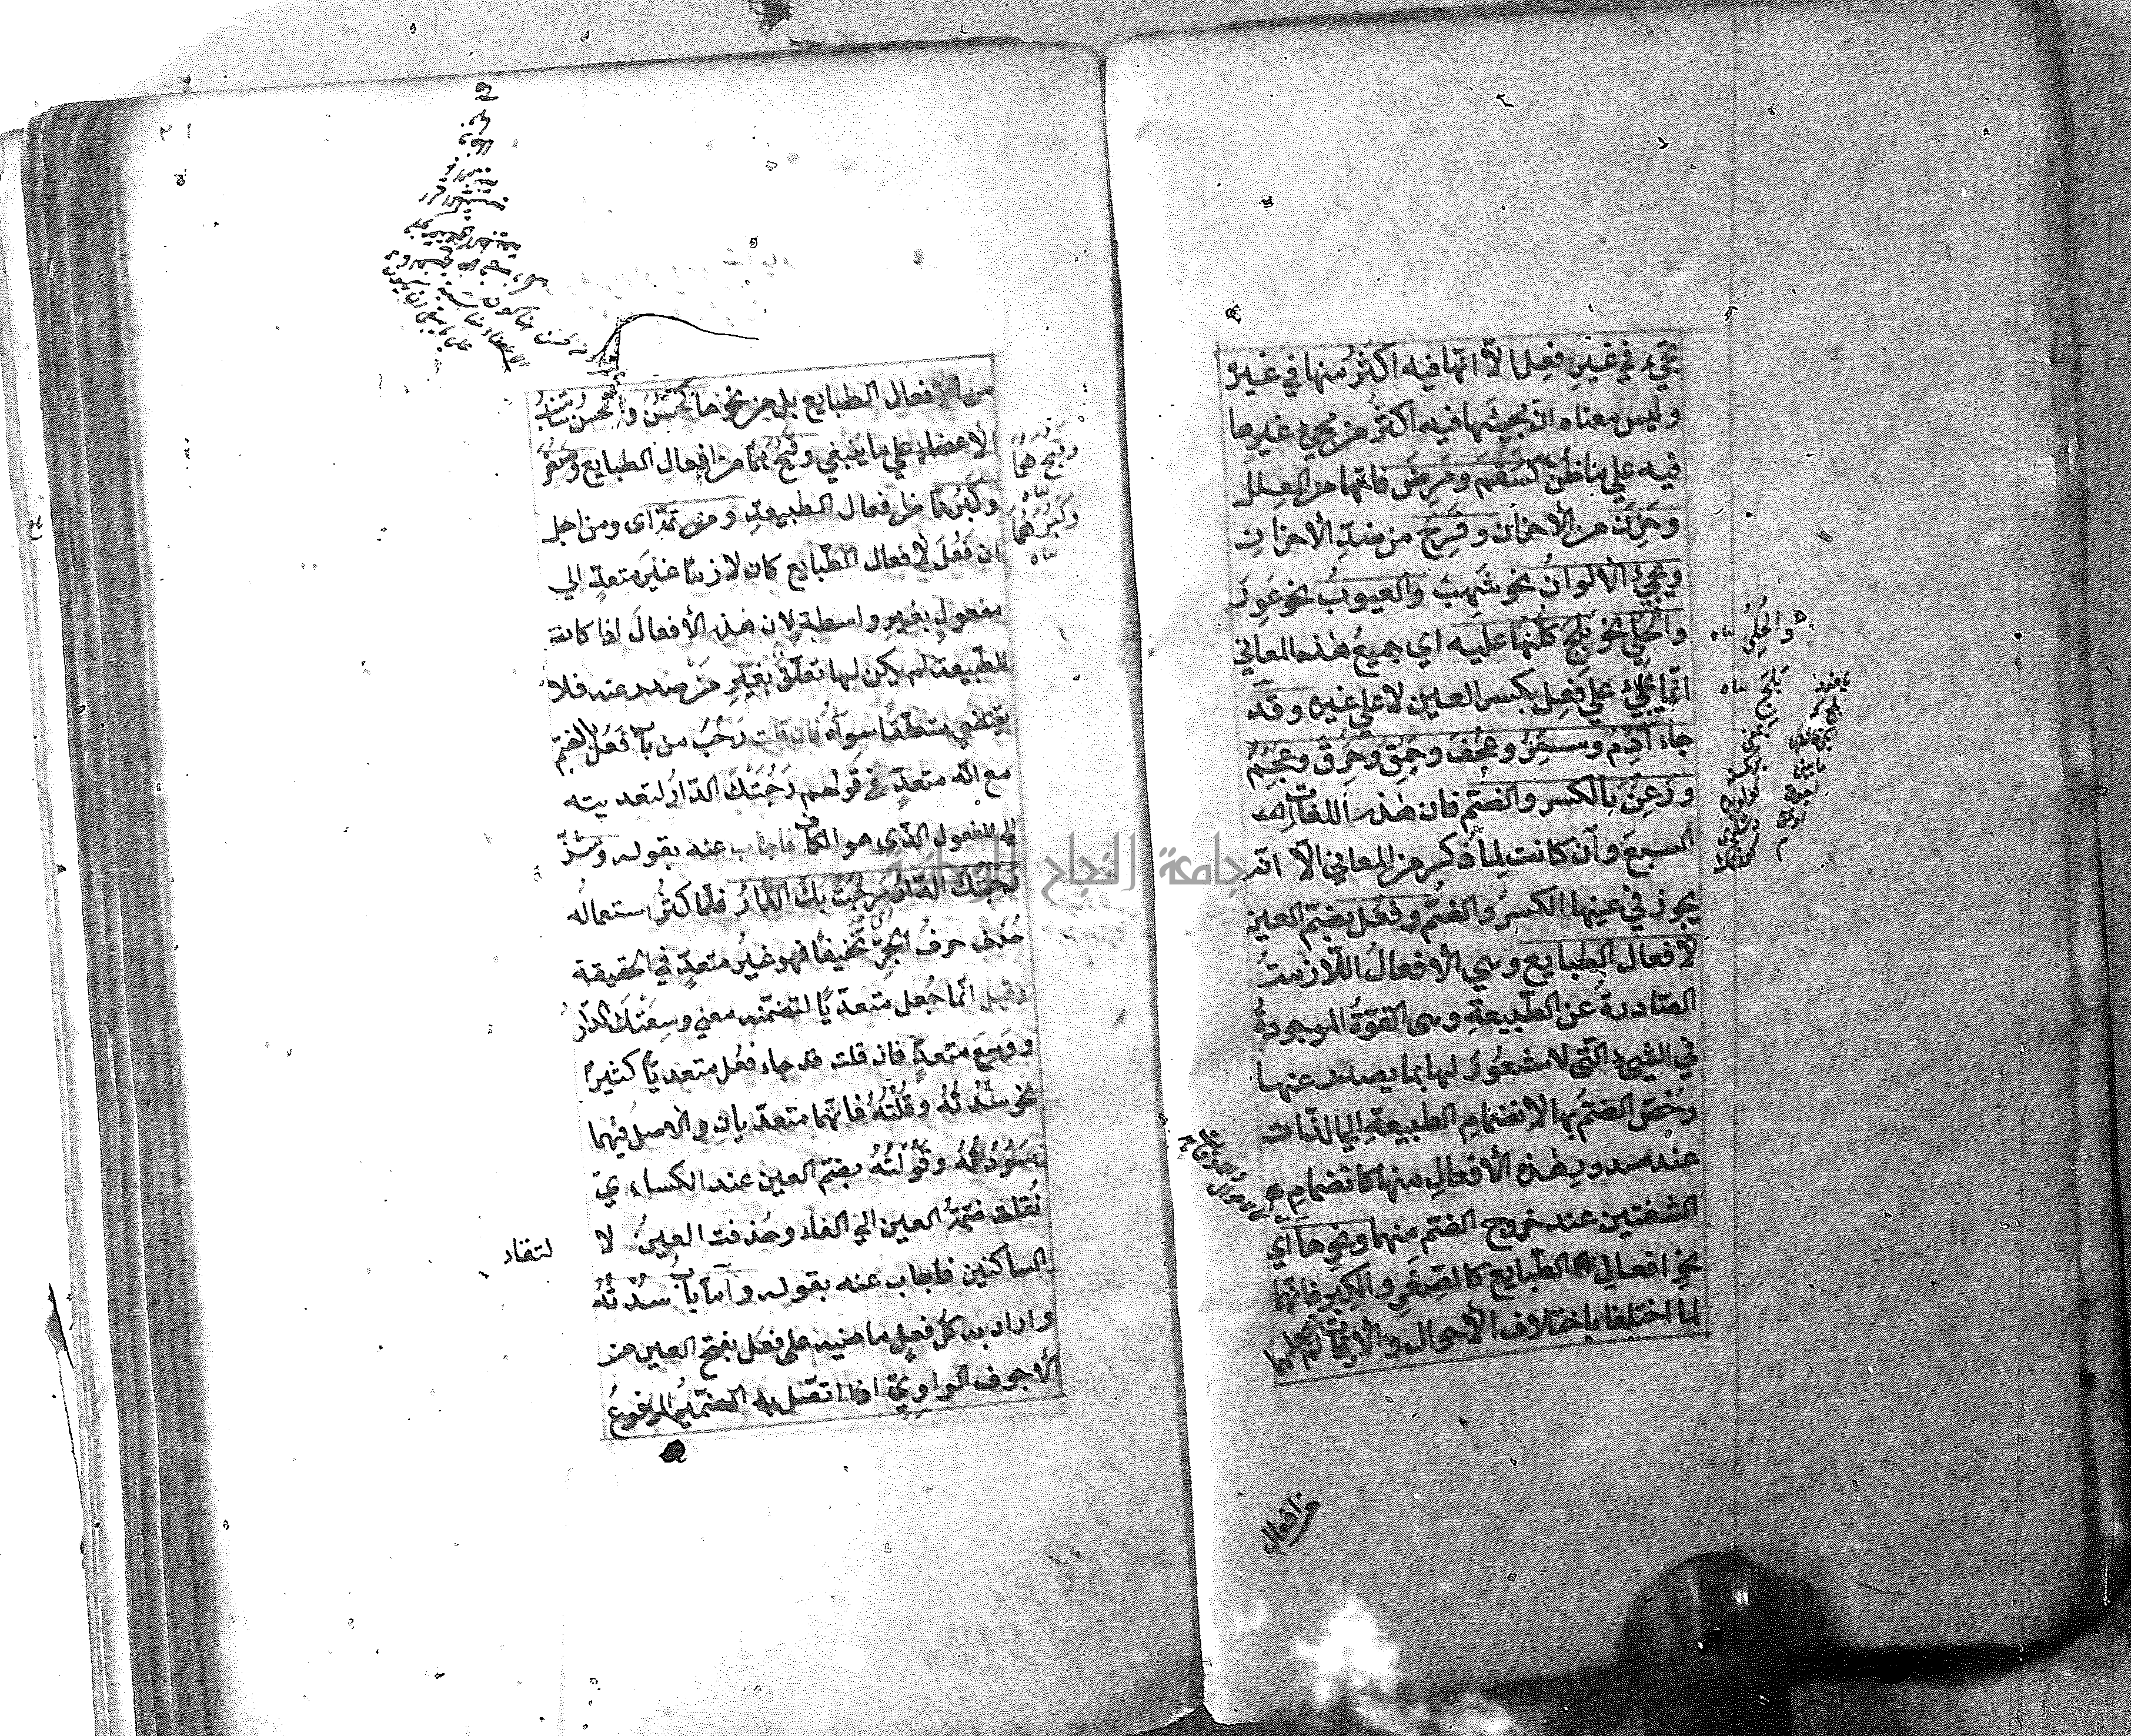 تجيء في غير فعل الا انها فيه اكثر منها في غيره
وليس معناه ان مجيئها فيه اكثر من مجيء غيرها
فيه علي ما ظن كسقم ومرض فانها من العلل
وحزن من الأحزان وفرح من ضد الأحزان
ويجيء الألوان نحو شهب والعيوب نحو عور
والحلي نحو بلج كلها عليه اي جميع هذه المعاني
انما يجيء علي فعل بكسر العين لا علي غيره وقد
جاء ادم وسمر وعجف وحمق وخرق وعجم
ورعن بالكسر والضم فان هذه اللغات
السبع وان كانت لما ذكر من المعاني الا انه
يجوز في عينها الكسر والضم وفعل بضم العين
لأفعال الطبايع وهي الأفعال اللازمة
الصادرة عن الطبيعة وهي القوة الموجودة
في الشيء التي لا شعور لها بما يصدر عنها
وخص الضم بها لانضمام الطبيعة الي الذات
عند صدور هذه الأفعال منها كانضمام
الشفتين عند خروج الضم منها ونحوها اي
نحو افعال الطبايع كالصغر والكبر فانهما
لما اختلفا باختلاف الأحوال والأوقات لم
والحلي
بلج
من افعال
من افعال الطبايع بل من نحوها كحسن والحسن تناسب
الأعضاء علي ما ينبغي وقبح هما من افعال الطبايع وصغر
وكبر هما من افعال الطبيعة ومن ثمة اي ومن اجل
ان فعل لأفعال الطبايع كان لازما غير متعد الي
مفعول بغير واسطة لان هذه الأفعال اذا كانت
للطبيعة لم يكن لها تعلق بغير من صدر عنه فلا
يقتضي متعلقا سواه فان قلت رحب من باب فعل بالضم
مع انه متعد في قولهم رحبتك الدار لتعديته
الي المفعول الذي هو الكاف فاجاب عنه بقوله وشذ
رحبتك الدار اي رحبت بك الدار فلما كثر استعماله
حذف حرف الجر تخفيفا فهو غير متعد في الحقيقة
وقيل انما جعل متعديا لتضمنه معني وسعتك الدار
ووسع متعد فان قلت قد جاء فعل متعديا كثيرا
نحو سدته وقلته فانهما متعديان والأصل فيهما
سودته وقولته بضم العين عند الكسائي
نقلت ضمة العين الي الفاء وحذفت العين لا
لتقاء
الساكنين فاجاب عنه بقوله واما باب سدته
واراد به كل فعل ماضيه علي فعل بفتح العين من
الأجوف الواوي اذا اتصل به الضمير المرفوع
وقبح هما
وكبر هما
جامعة النجاح